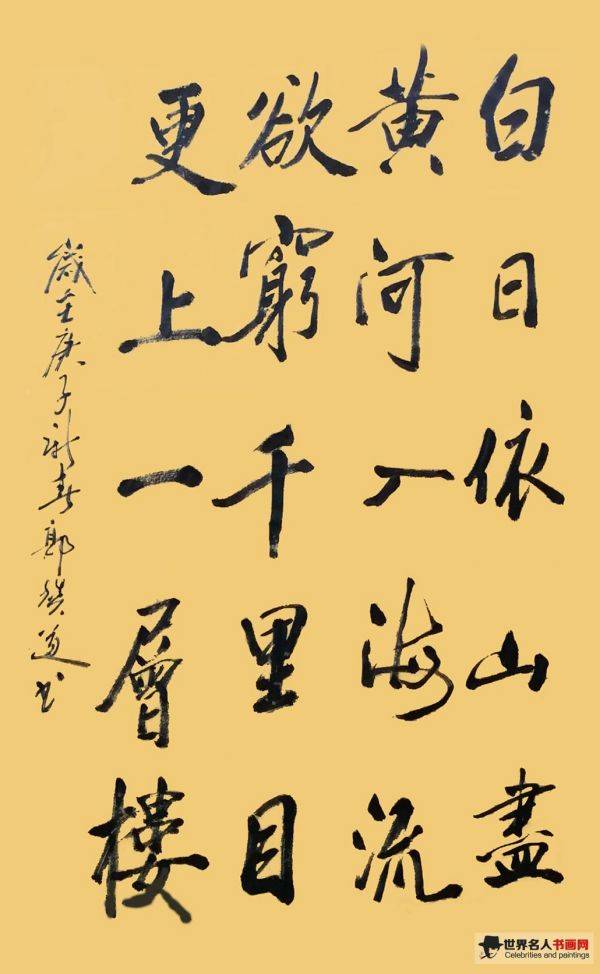 白日依山盡
黃河入海流
欲窮千里目
更上一層樓
歲在庚子新春郭 道书
世界名人书画网
Celebrities and paintings